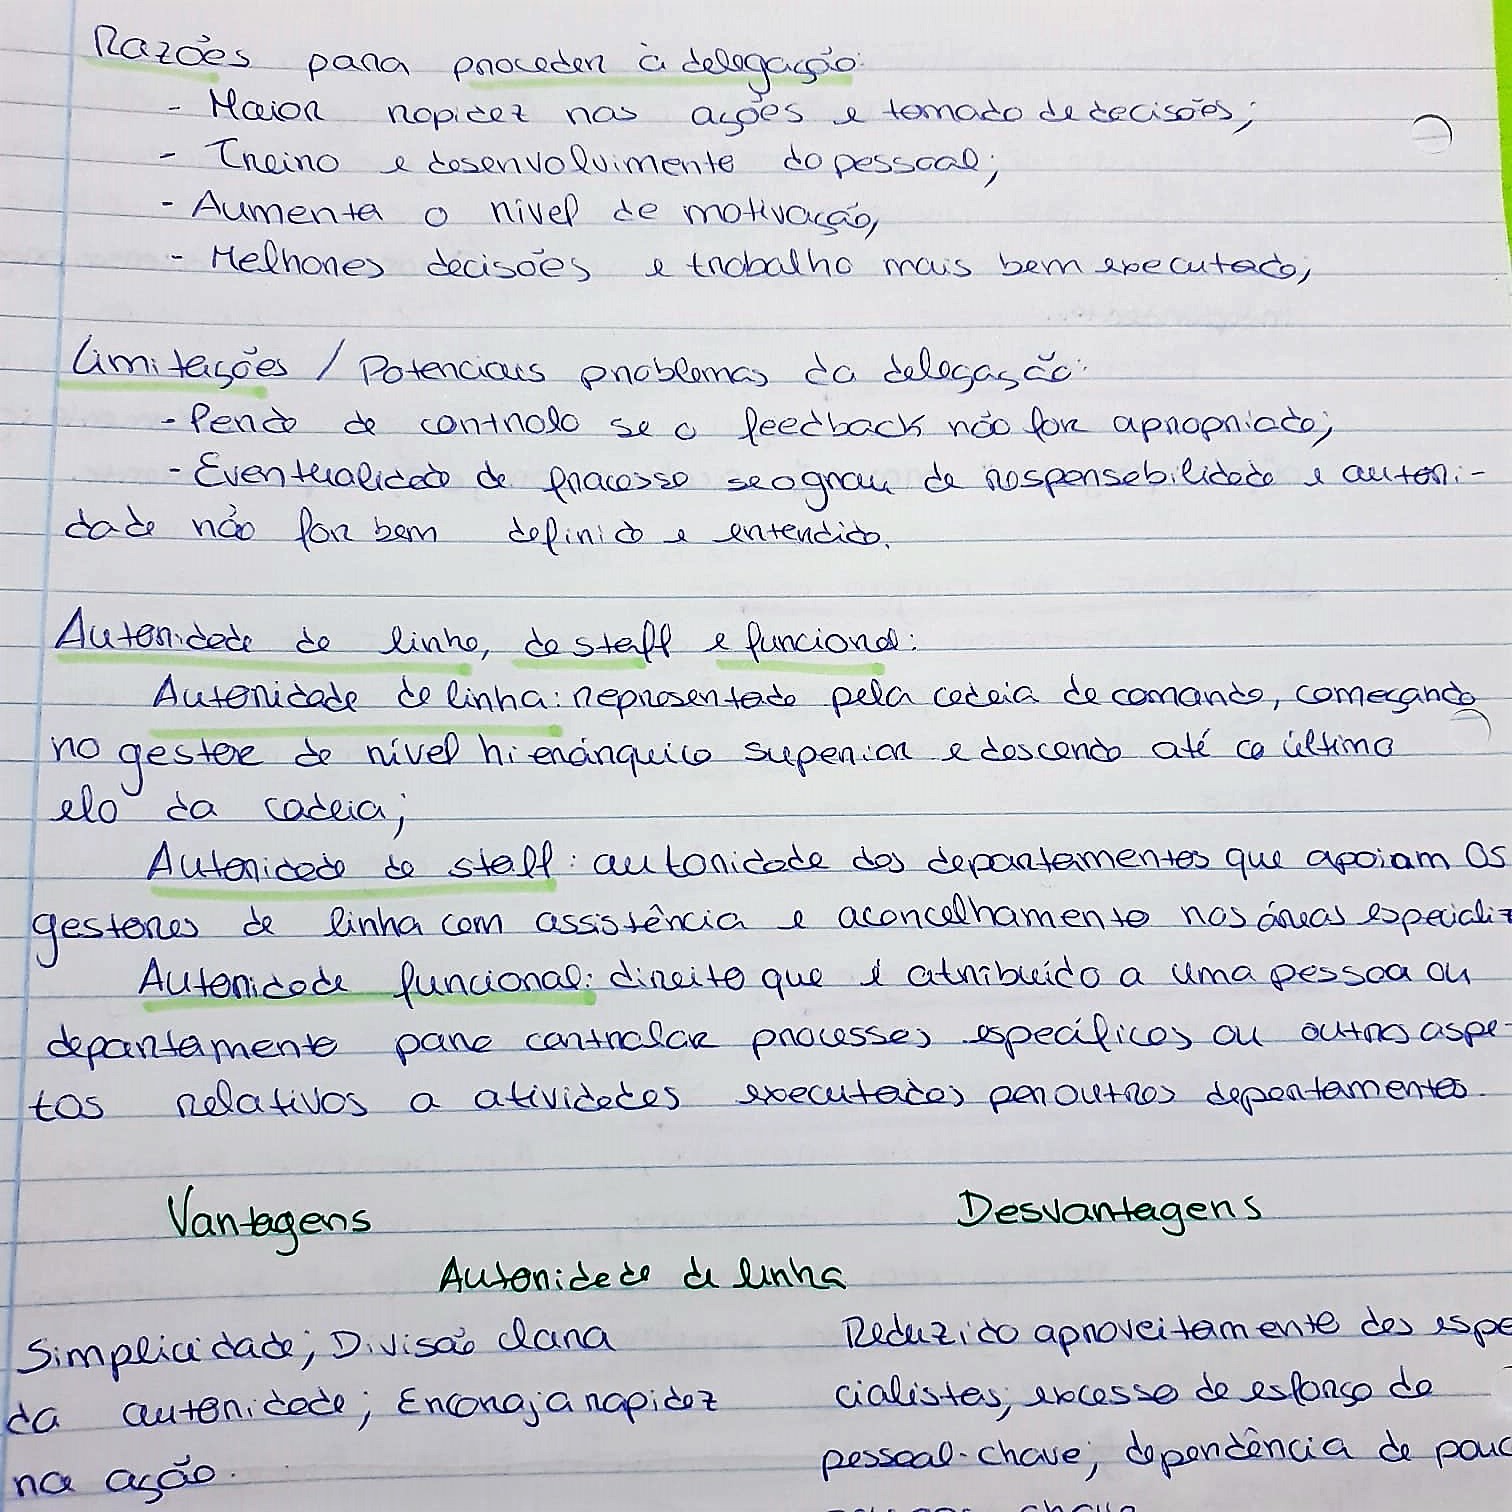 Razões para proceder à delegação:
- Maior rapidez nas ações e tomada de decisões;
- Treino e desenvolvimento do pessoal;
- Aumenta o nível de motivação,
- Melhores decisões e trabalho mais bem executado;
Limitações / Potenciais problemas da delegação:
- Perda de controlo se o feedback não for apropriado;
- Eventualidade de fracasso se o grau de responsabilidade e autori-
dade não for bem definido e entendido.
Autoridade de linha, de staff e funcional:
Autoridade de linha: representada pela cadeia de comando, começando
no gestor de nível hierárquico superior e descendo até ao último
elo da cadeia;
Autoridade de staff: autoridade dos departamentos que apoiam os
gestores de linha com assistência e aconcelhamento nas áreas especializ
Autoridade funcional: direito que é atribuído a uma pessoa ou
departamento para controlar processos específicos ou outros aspe-
tos relativos a atividades executadas por outros departamentos.
Vantagens Desvantagens
Autoridade de linha
Simplicidade; Divisão clara Reduzido aproveitamento dos espe
da autoridade; Encoraja a rapidez cialistas; excesso de esforço do
na ação. pessoal-chave; dependência de pouc
chave